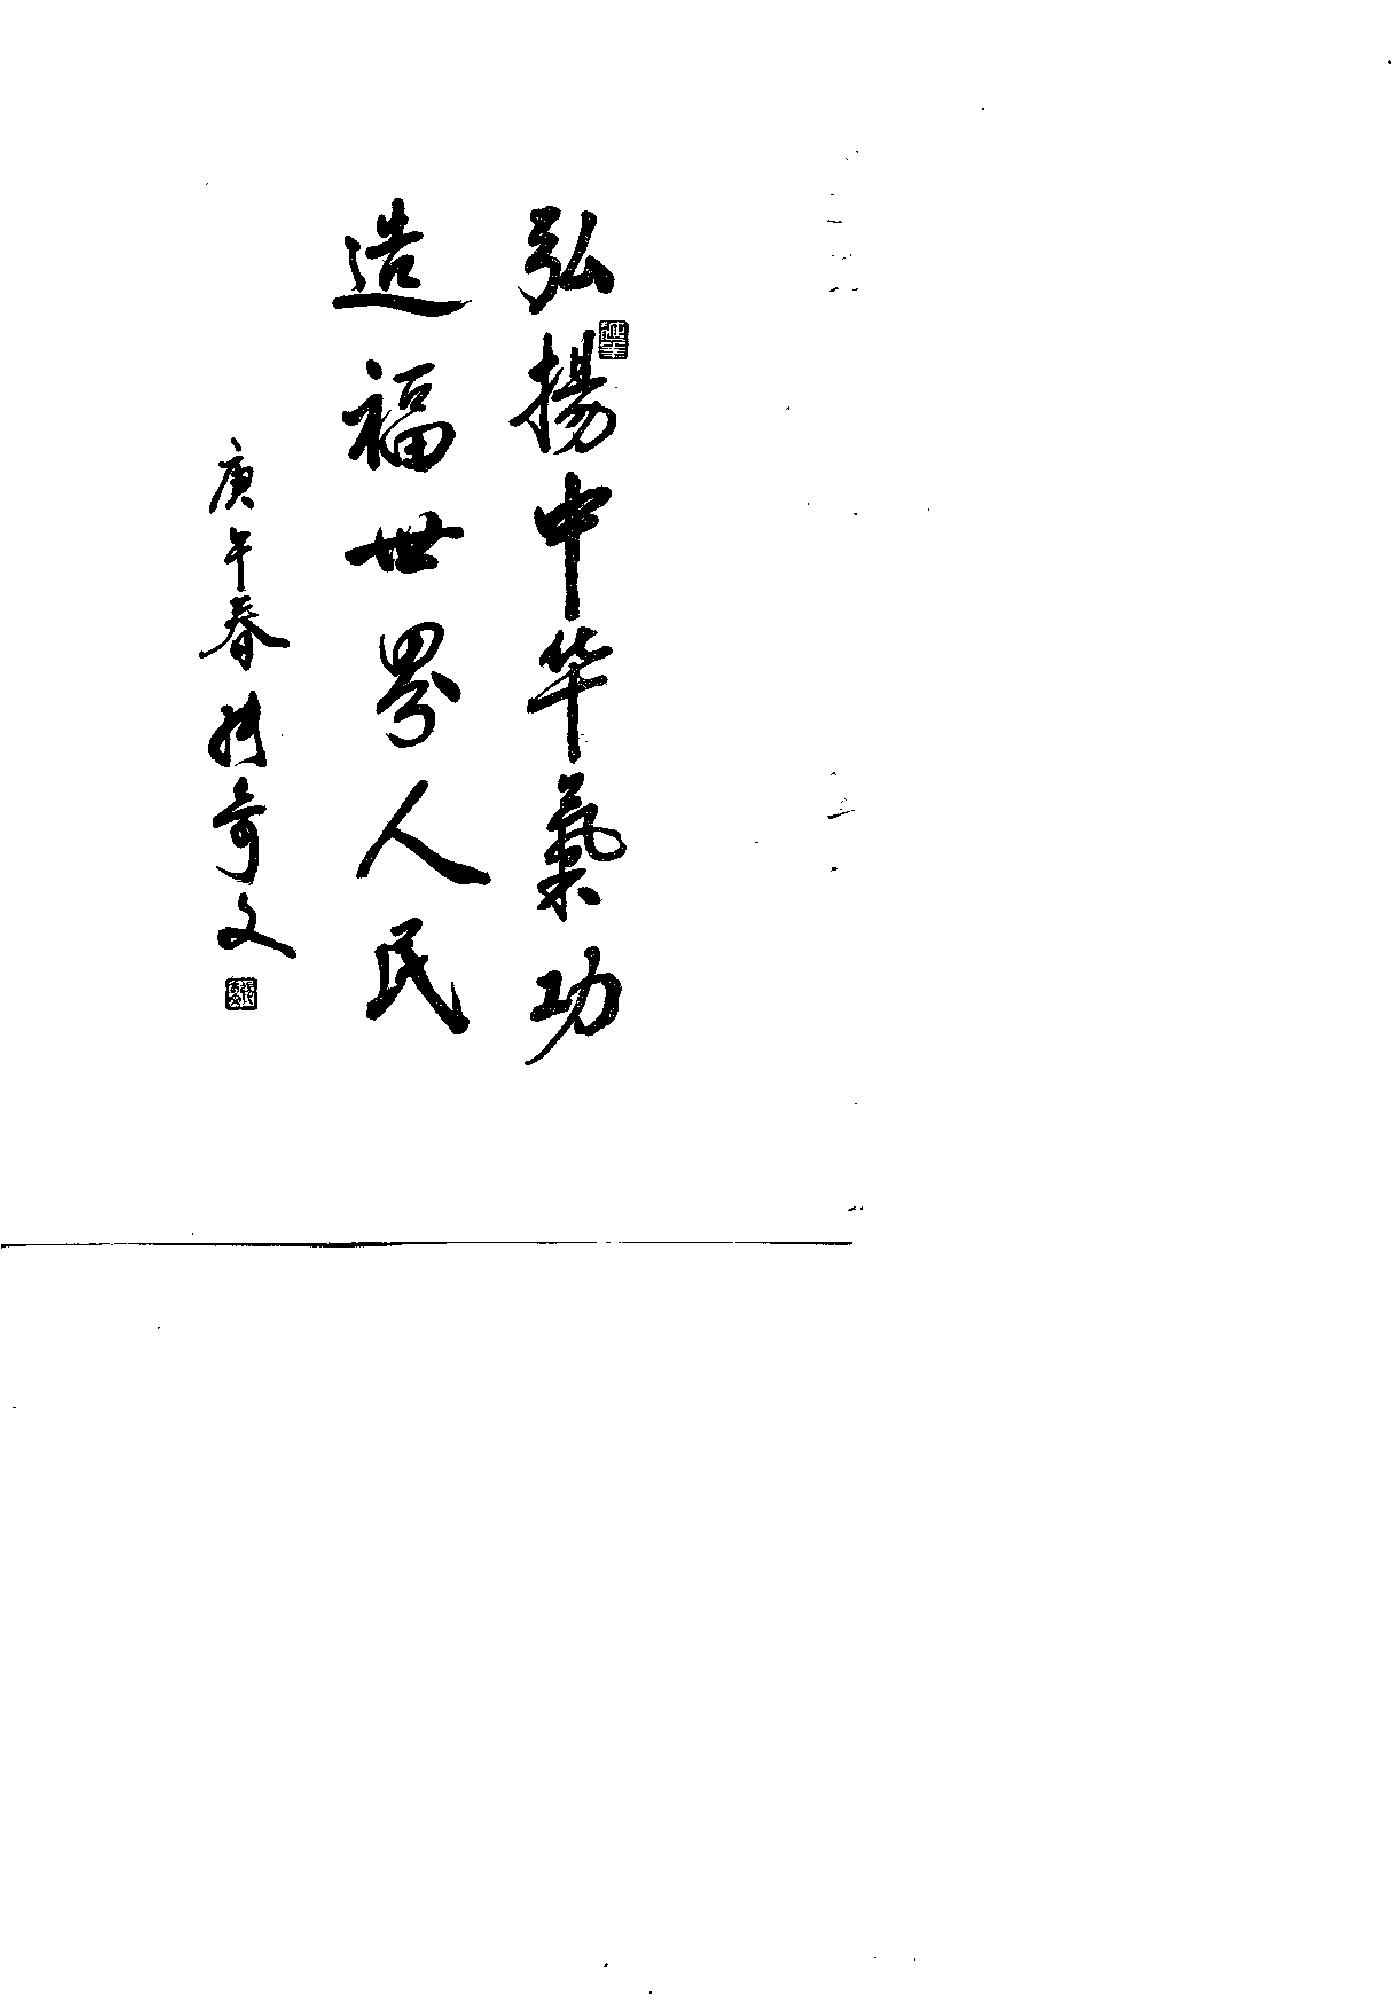 弘揚中华氣功
造福世界人民
庚午春 张奇文